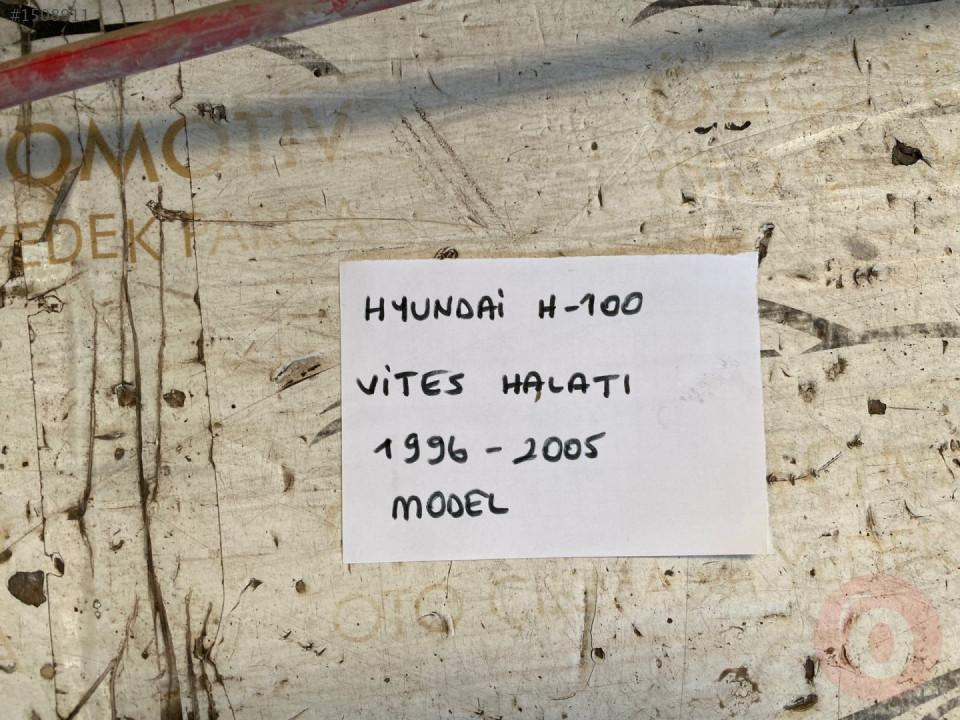 #1508911
OTOMOTİV
YEDEK PARÇA
HYUNDAİ H-100
VİTES HALATI
1996 - 2005
MODEL
OTO ÇIKMA